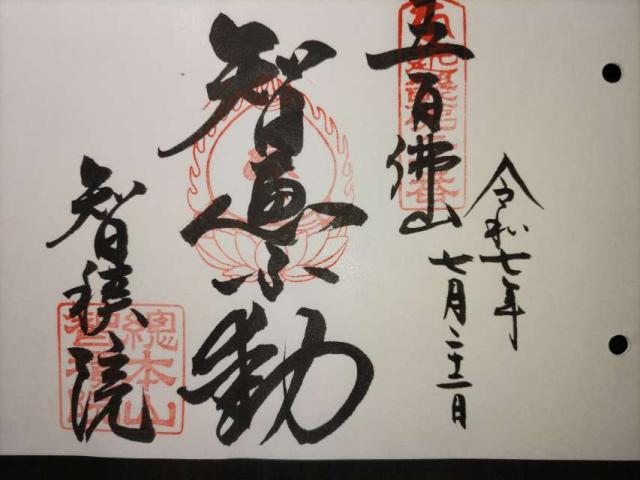 令和七年
七月二十二日
五百佛山
智恵不動
智積院
總本山
智積院